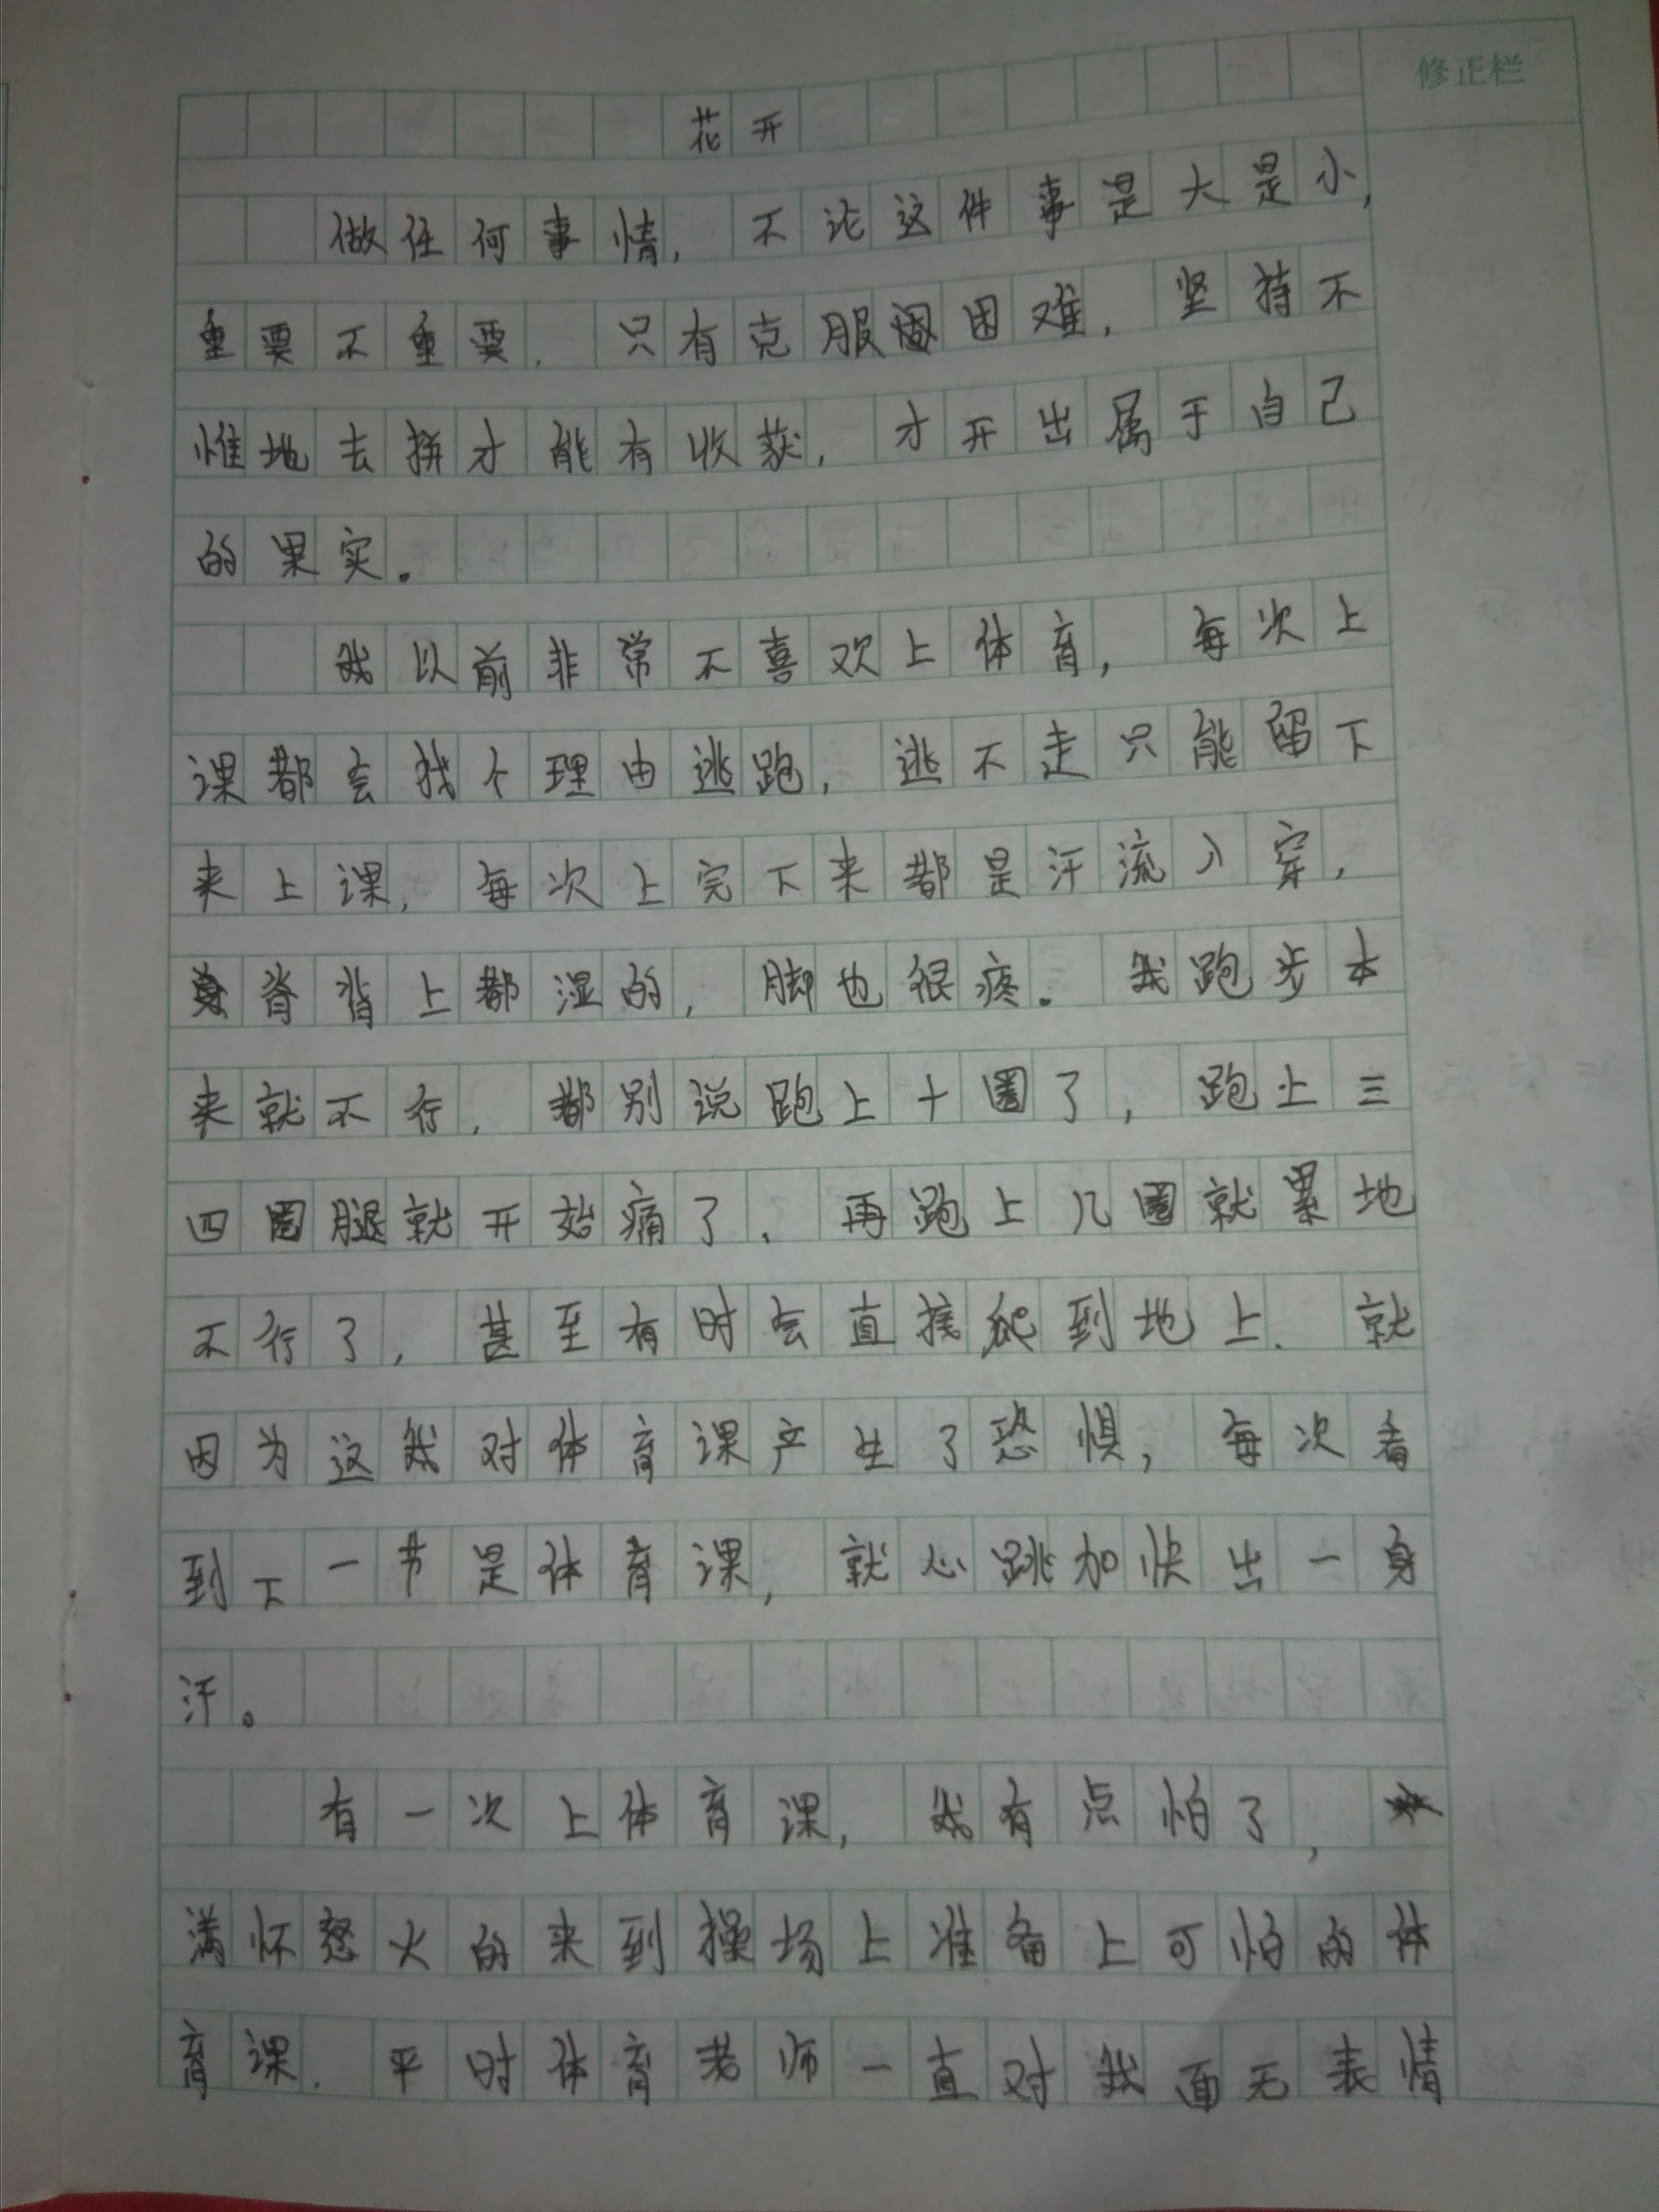 修正栏
花开
做任何事情，不论这件事是大是小，
重要不重要，只有克服困难，坚持不
惟地去拼才能有收获，才开出属于自己
的果实。
我以前非常不喜欢上体育，每次上
课都会找个理由逃跑，逃不走只能留下
来上课，每次上完下来都是汗流入穿，
脊背上都湿的，脚也很疼。我跑步本
来就不行，都别说跑上十圈了，跑上三
四圈腿就开始痛了，再跑上几圈就累地
不行了，甚至有时会直接爬到地上．就
因为这我对体育课产生了恐惧，每次看
到下一节是体育课，就心跳加快出一身
汗。
有一次上体育课，我有点怕了，
满怀怒火的来到操场上准备上可怕的体
育课．平时体育老师一直对我面无表情